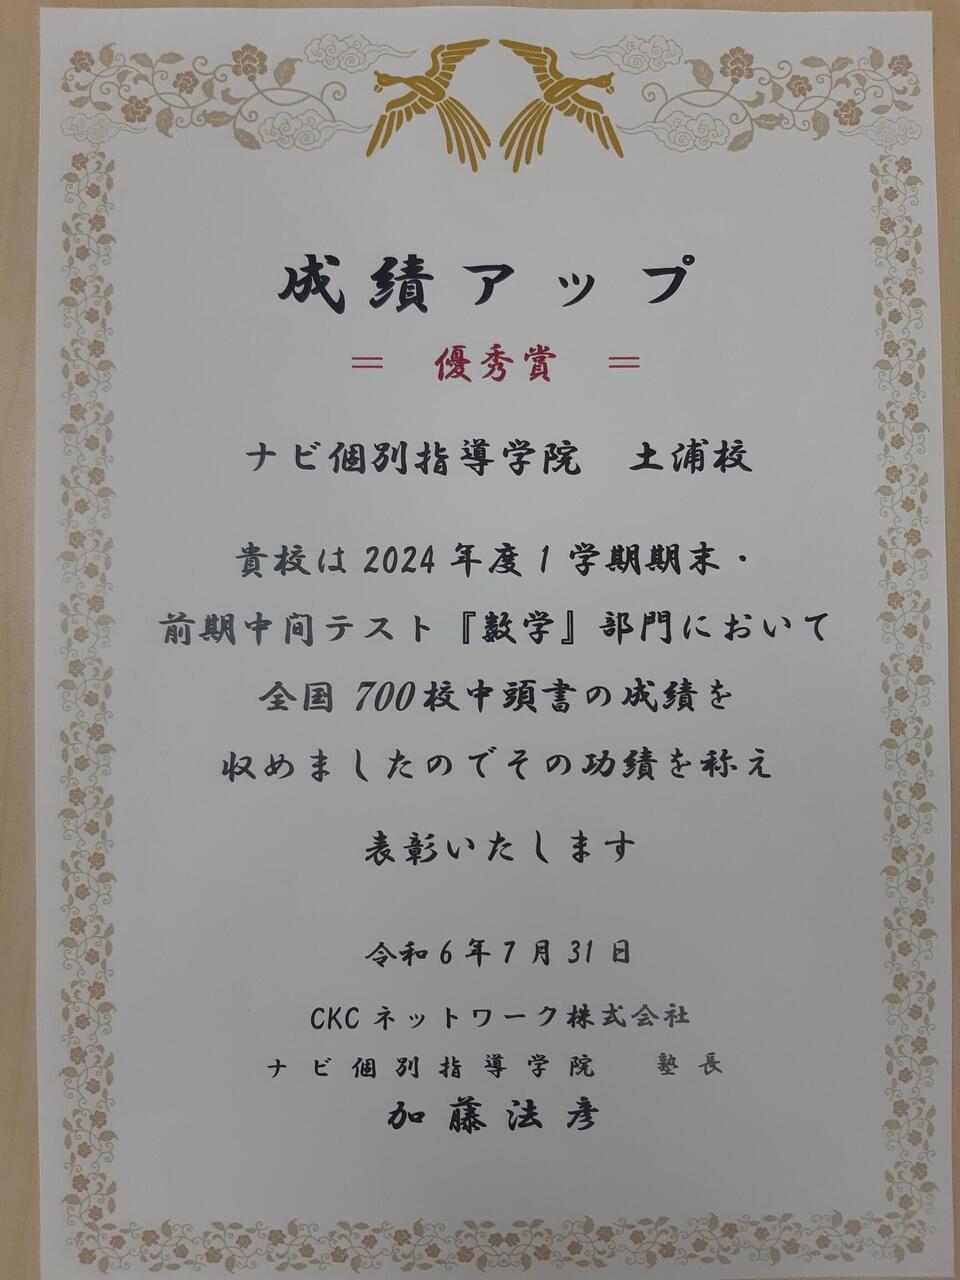 成績アップ
＝　優秀賞　＝
ナビ個別指導学院　土浦校
貴校は2024年度1学期期末・
前期中間テスト『数学』部門において
全国700校中頭書の成績を
収めましたのでその功績を称え
表彰いたします
令和6年7月31日
CKCネットワーク株式会社
ナビ個別指導学院　塾長
加藤法彦